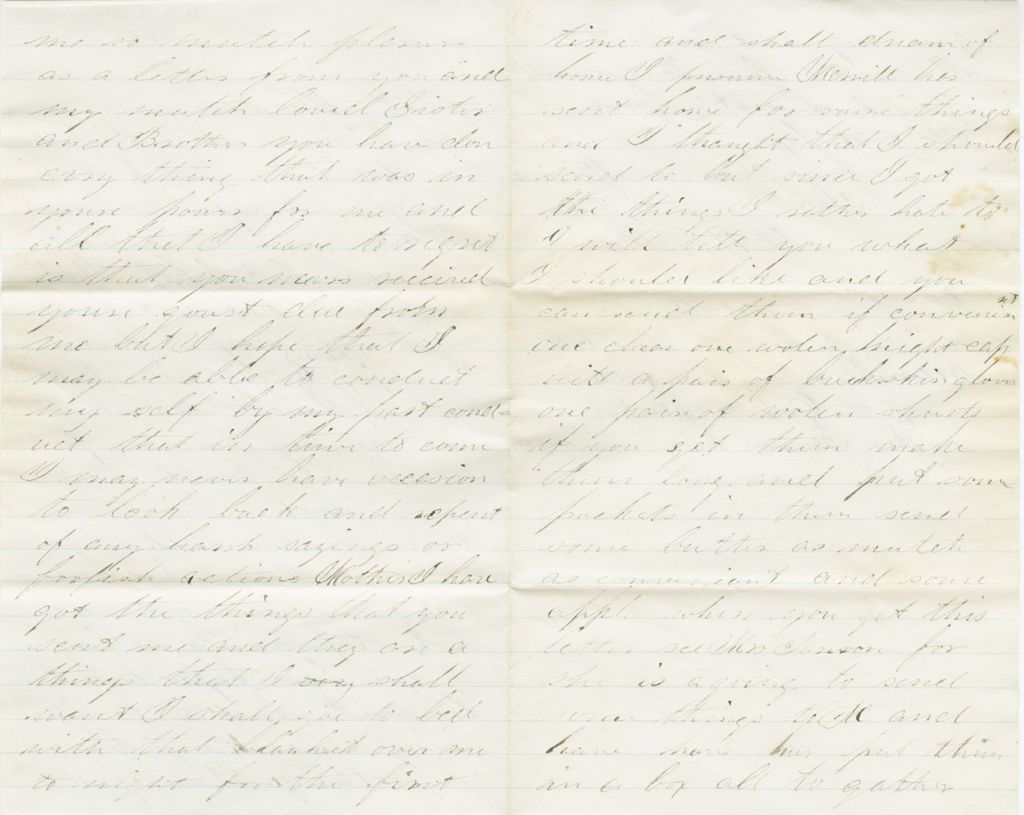 me so mutch pleasure
as a letter from you and
my mutch loved Sister
and Brother you have don
every thing that was in
youre power for me and
all that I have to regret
is that you never received
youre goust due from
me but I hope that I
may be able to conduct
my self by my past cond=
uct that in time to come
I may never have occasion
to look back and repent
of any harsh sayings or
foolish actions Mother I have
got the things that you
sent me and they are a
things that I shall
want I shall goe to bed
with that blanket over me
to night for the first
time and shall dream of
home I presume Merrill has
sent home for some things
and I thaught that I should
send to but since I got
the things I rather hate to
I will tell you what
I should like and you
can send them if convenient
one chees one wolen knight cap
with a pair of buckskin gloves
one pair of woolen shurts
if you get them make
them long and put some
pockets in them send
some butter as mutch
as conveniant and some
apples when you get this
letter see Mrs for
she is a going to send
some things to M and
have her put them
in a box all to gather